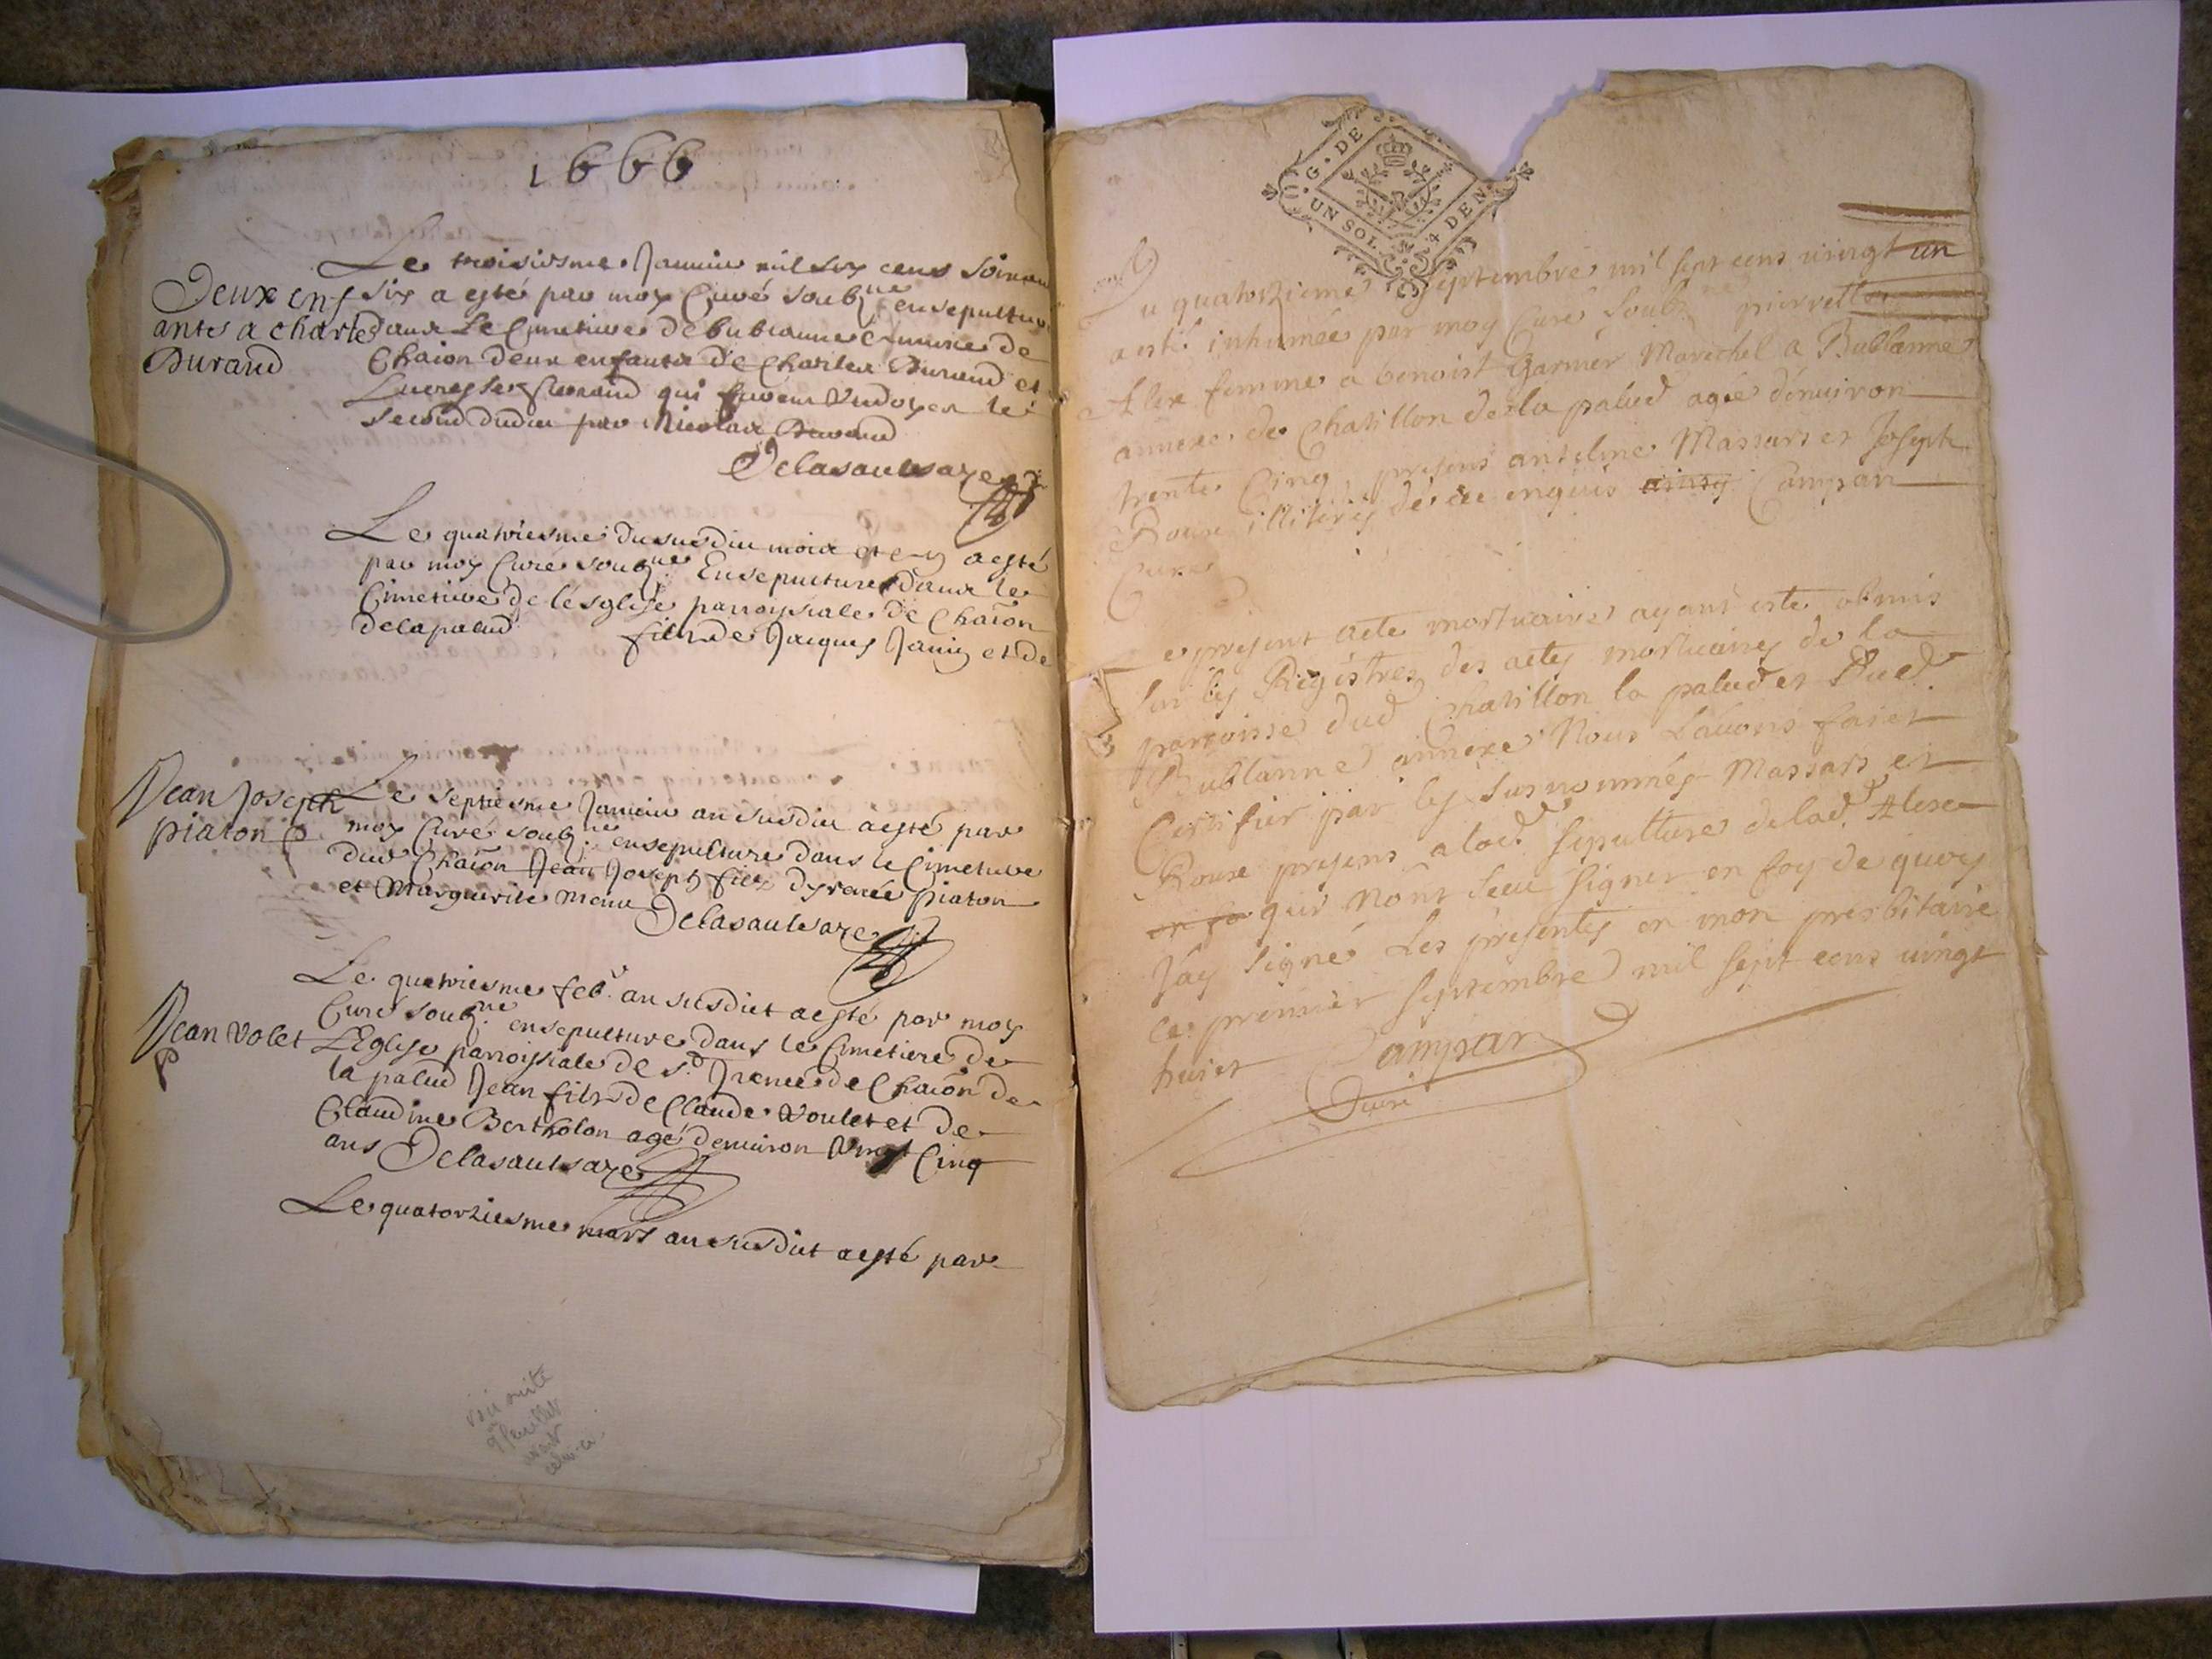 1666
Le troisiesme Janvier mil six cens soixan
Deux enf
ants a charles
Durand
six a esté par moy Curé soubz.ne ensepultur
dans Le Cimetiere de bublanne annexe de
Chãion deux enfants de Charles Durand et
qui furent Vndoyes le
second dudit par Nicolas Durand
Delasaulsaye
Le quatriesme du susdit mois et an a esté
par moy Curé soubz.ne Ensepulture dans le
Cimetiere de lésglise parroyssiale de Chãion
delapalud fils de Jacques Janin et de
Jean Joseph
piaton
Le septiesme Janvier an susdit a esté par
moy Curé soubz.ne ensepulture dans le Cimetiere
dud Chãion Jean Joseph fils dyrenée piaton
et Marguerite
Delasaulsaye
Le quatriesme feb.r an susdict a esté par moy
Jean volet
Curé soubz.ne ensepulture dans le Cimetiere de
LEglise parroyssiale de s.t Jrenée de Chãion de
la palud Jean fils de Claude voulet et de
Claudine Bertholon agé denuiron Vingt Cinq
ans Delasaulsaye
Le quatorziesme mars an susdict a esté par
voir suite
9 feuillets
avant
celui-ci
G. DE
UN SOL 4 DEN.
Du quatorzieme septembre mil sept cens vingt un
a esté inhumée par moy Curé soub.né pierrette
Alex femme a benoist Garnier Marechel a Bublanne
annexe de Chatillon de la palud agée dénuiron
trente Cinq, presens antelme Massard et Joseph
Roux illiterés de ce enquis ainsy Campan
Curé
Le present acte mortuaire ayant esté obmis
sur les Régistres des actes mortuaires de la
parroisse dud Chatillon la palud et Aud.
Bublanne annexe Nous Lauons faict
Certifier par les susnommés Massard et
Roux presens a lad. sepulture de lad. Alex
en fo qui Nont sceu signer en foy de quoy
Jay signé Les presentes en mon presbitaire
ce premier septembre mil sept cens vingt
huict Campan
Curé